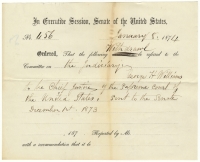 In Executive Session, Senate of the United States.
January 8, 1874
No 456
Ordered, That the following
Withdrawal
be referred to the
Committee on the Judiciary
George H Williams
to be Chief Justice of the Supreme Court of
the United States; sent to the Senate
December 1st 1873
187 Reported by Mr.
with a recommendation that it be